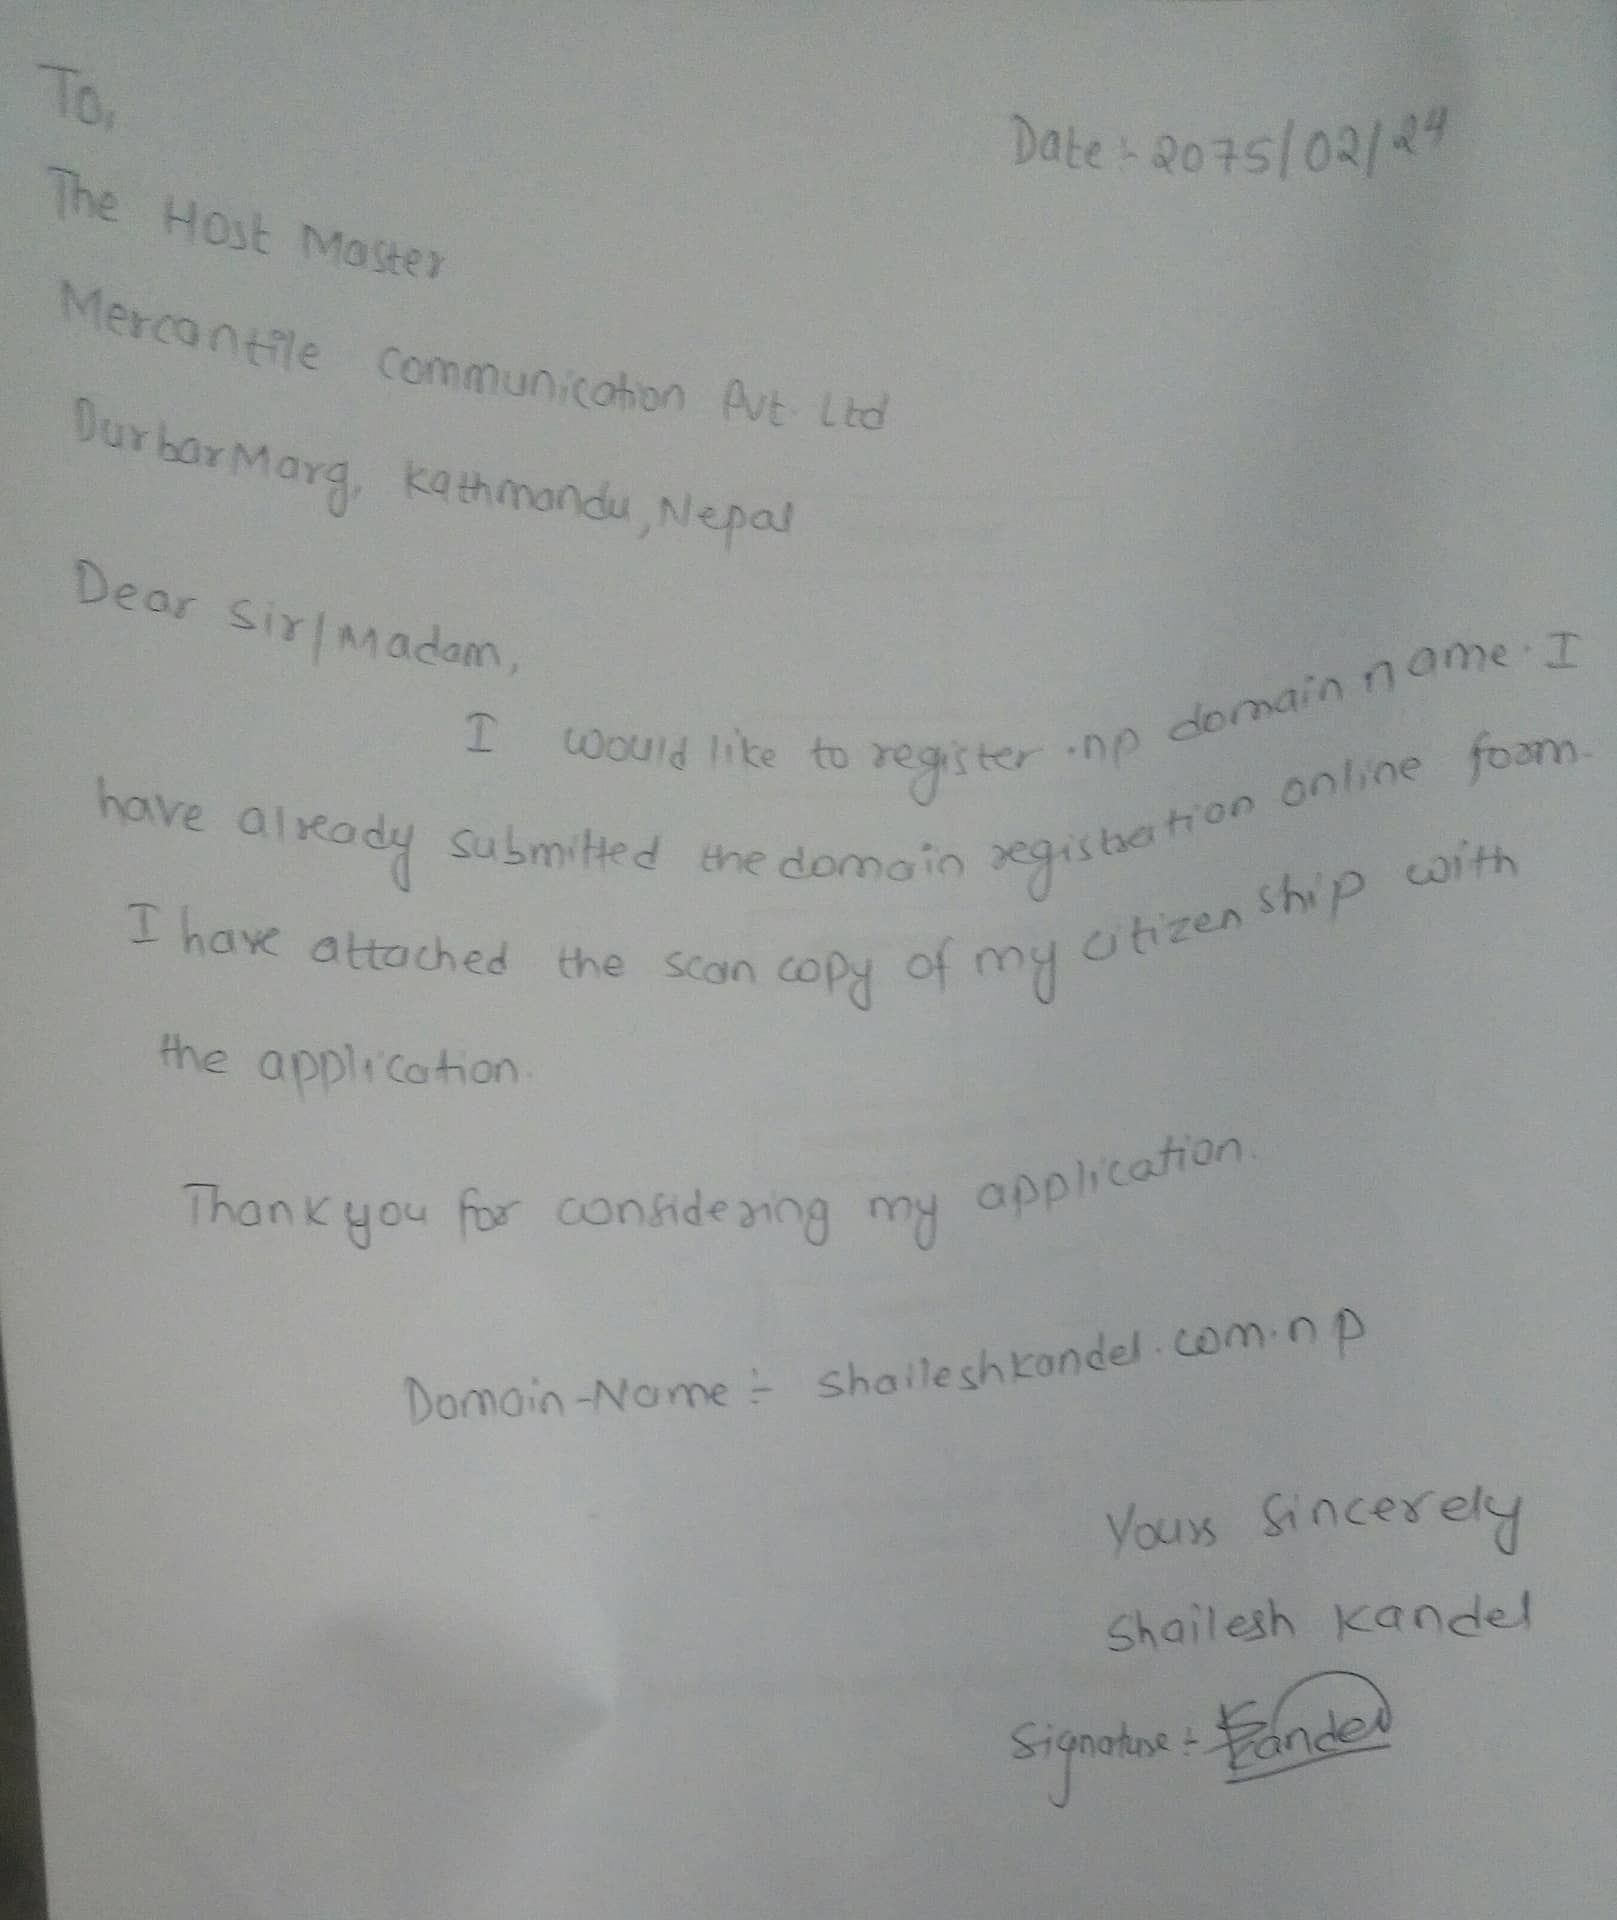 To,
Date :- 2075/02/24
The Host Master
Mercantile Communication Pvt. Ltd
DurbarMarg, Kathmandu, Nepal
Dear Sir/Madam,
I would like to register .np domain name. I
have already submitted the domain registration online foam.
I have attached the scan copy of my citizenship with
the application.
Thank you for considering my application.
Domain-Name :- shaileshkandel.com.np
Yours Sincerely
Shailesh Kandel
Signature :- Kandel